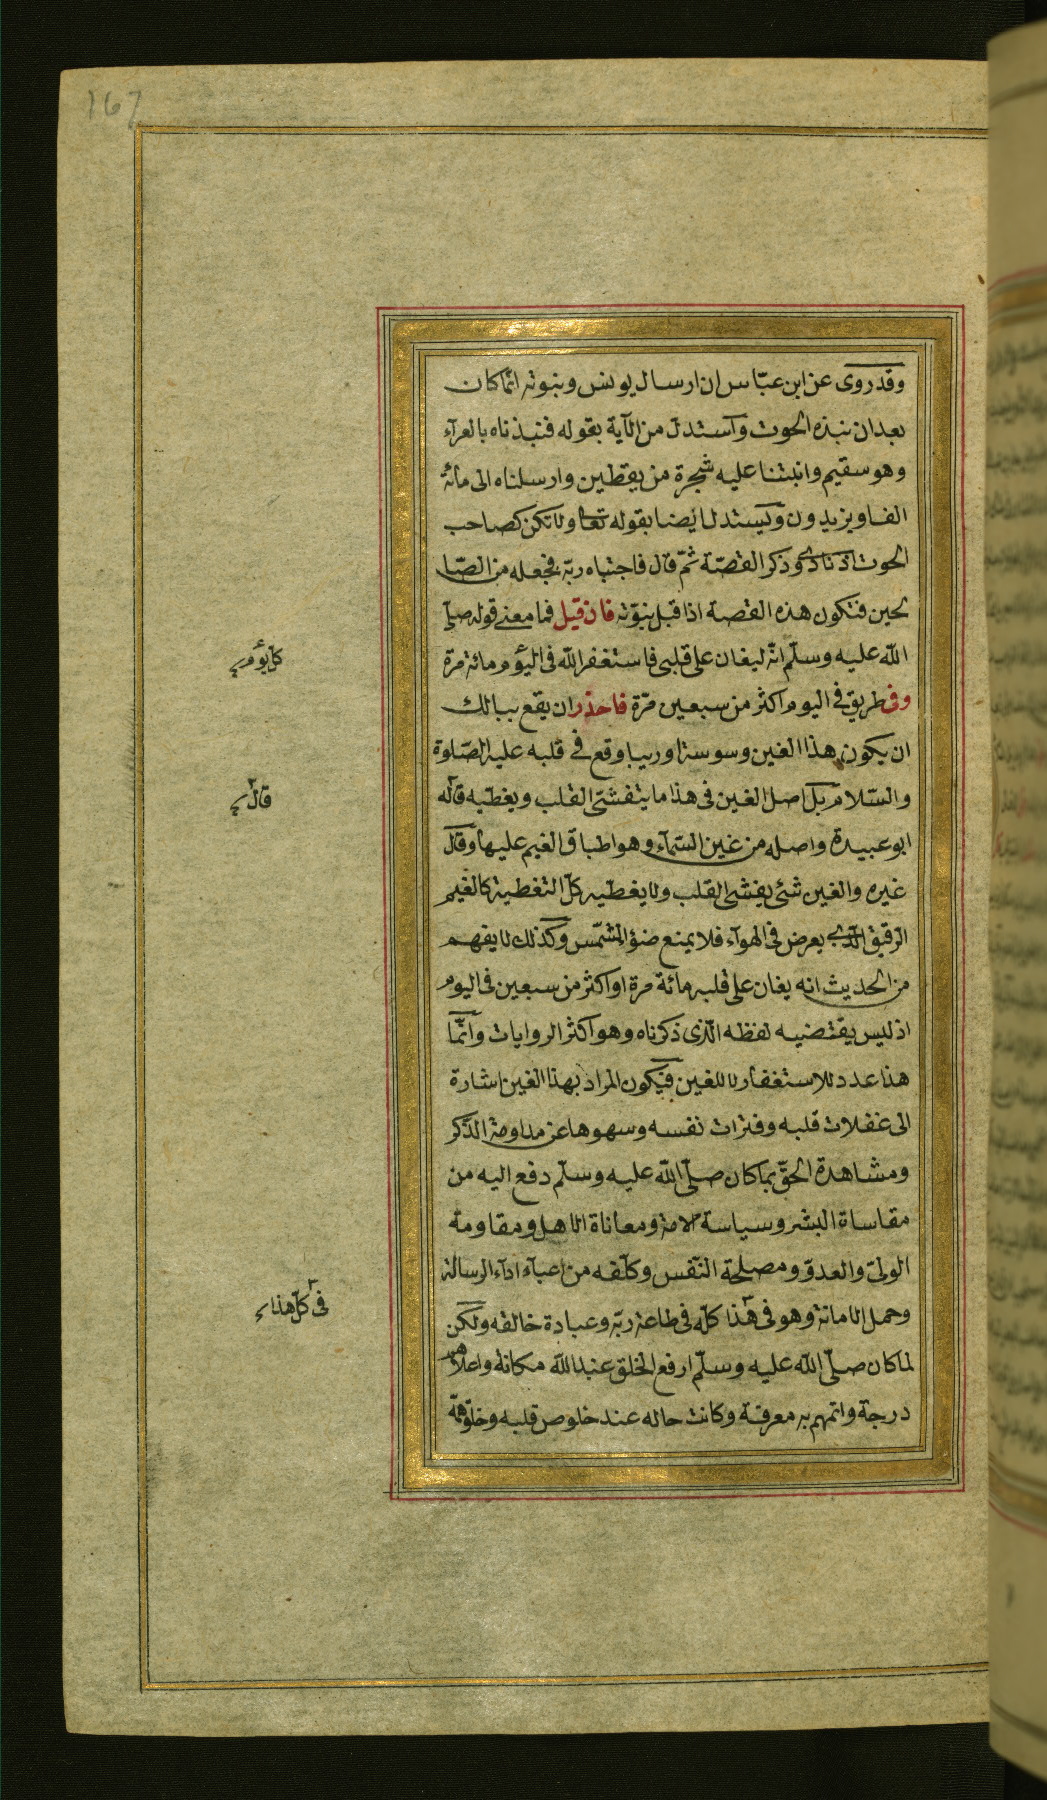 167
وقد روى عن ابن عبّاس ان ارسال يونس ونبوته انّما كان
بعد ان نبذه الحوت وآستدل من الآية بقوله فنبذناه بالعرآء
وهو سقيم وانبتنا عليه شجرة من يقطين وارسلناه الى مائة
الف او يزيدون ويستدل ايضا بقوله تعا ولا تكن كصاحب
الحوت اذ نادى وذكر القصّة ثمّ قال فاجتباه ربّه فجعله من الصّا
لحين فتكون هذه القصة اذا قبل نبوّته فان قيل فما معنى قوله صلّى
اللّه عليه وسلّم انّه ليغان على قلبى فاستغفر اللّه فى اليوم مائة مرّة
وفى طريق فى اليوم اكثر من سبعين مرّة فاحذر ان يقع ببالك
ان يكون هذا الغين وسوسة او ريبا وقع فى قلبه عليه الصّلوة
والسّلام بل اصل الغين فى هذا ما يتغشّى القلب ويغطّيه قاله
ابو عبيدة واصله من غين السّمآء وهو اطباق الغيم عليها وقال
غيره والغين شئ يغشى القلب ولا يغطّيه كلّ التغطية كالغيم
الرّقيق الّذى يعرض فى الهوآء فلا يمنع ضؤ الشّمس وكذلك لا يفهم
من الحديث انه يغان على قلبه مائة مرة او اكثر من سبعين فى اليوم
اذ ليس يقتضيه لفظه الّذى ذكرناه وهو اكثر الروايات وانّما
هذا عدد للاستغفار لا للغين فيكون المراد بهذا الغين اشارة
الى غفلات قلبه وفترات نفسه وسهوها عن مداومة الذّكر
ومشاهدة الحقّ بما كان صلّى اللّه عليه وسلّم دفع اليه من
مقاساة البشر وسياسة الامة ومعاناة الاهل ومقاومة
الولىّ والعدوّ ومصلحة النّفس وكلّفه من اعبآء ادآء الرسالة
وحمل الامانة وهو فى هذا كلّه فى طاعة ربّه وعبادة خالقه ولكن
لما كان صلّى اللّه عليه وسلّم ارفع الخلق عند اللّه مكانة واعلاهم
درجة واتمهم به معرفة وكانت حاله عند خلوص قلبه وخلوّ همّه
كل يوم
قال
فى كلّ هذا